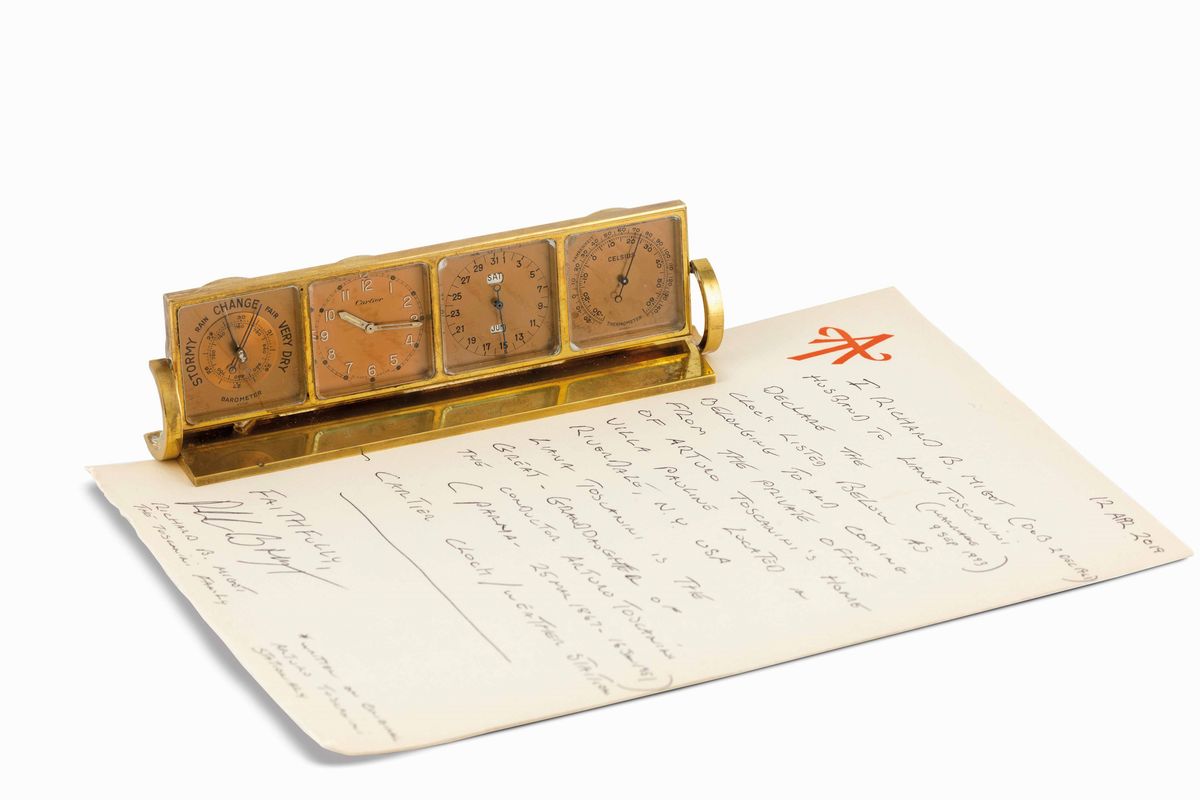 STORMY RAIN CHANGE FAIR VERY DRY
BAROMETER
Cartier
11 12 1
10 2
9
8 4
7 6 5
31 1 3 5 7 9 11 13 15 17 19 21 23 25 27 29
SAT
JUN
FAHRENHEIT
CELSIUS
THERMOMETER
A
12 APR 2019
I RICHARD B. MIGOT (DOB 2 DEC
HUSBAND TO LIANA TOSCANINI
(MARRIAGE 9 SEP 1993)
DECLARE THE BELOW AS
CLOCK LISTED
BELONGING TO AND COMING
FROM THE PRIVATE OFFICE
OF ARTURO TOSCANINI'S HOME
VILLA PAULINE LOCATED IN
RIVERDALE, N.Y USA
LIANA TOSCANINI IS THE
GREAT-GRANDDAUGHTER OF
THE CONDUCTOR ARTURO TOSCANINI
(PARMA. 25 MAR 1867-
- CARTIER CLOCK/WEATHER STATION
FAITHFULLY,
RICHARD B. MIGOT
THE TOSCANINI FAMILY
*WRITTEN ON ORIGINAL
ARTURO TOSCANINI
STATIONERY